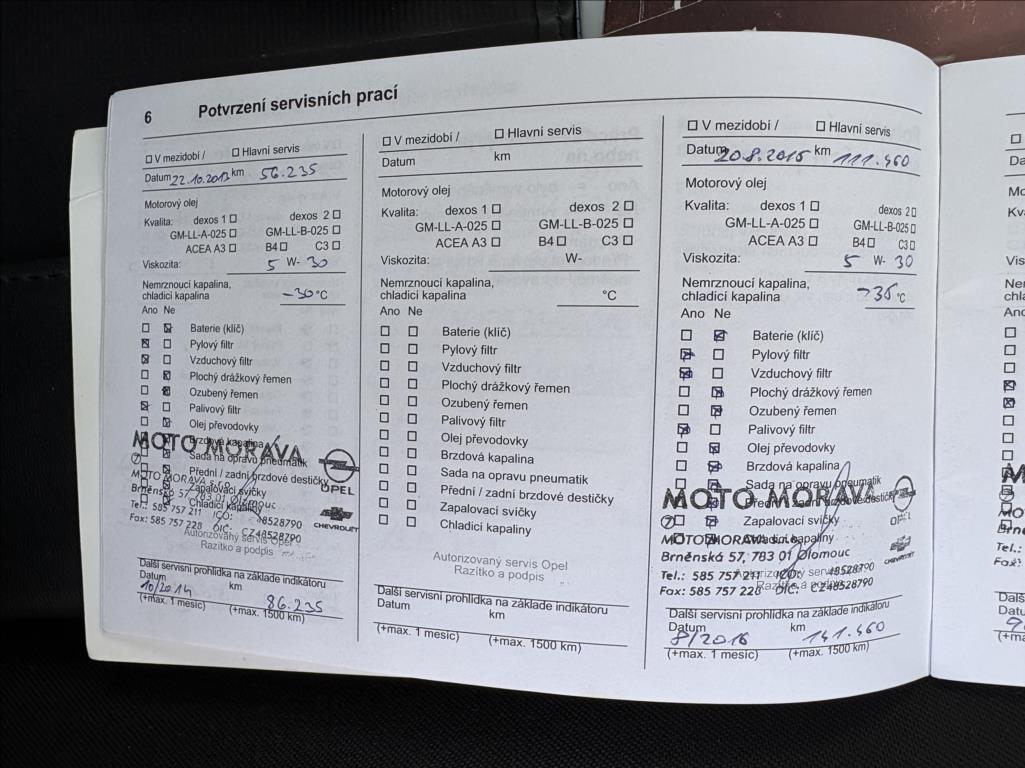 6 Potvrzení servisních prací
V mezidobí / Hlavní servis
Datum 22.10.2013 km 56.235
Motorový olej
Kvalita: dexos 1 dexos 2
GM-LL-A-025 GM-LL-B-025
ACEA A3 B4 C3
Viskozita: 5 W- 30
Nemrznoucí kapalina,
chladicí kapalina -30 °C
Ano Ne
Baterie (klíč)
Pylový filtr
Vzduchový filtr
Plochý drážkový řemen
Ozubený řemen
Palivový filtr
Olej převodovky
Brzdová kapalina
Sada na opravu pneumatik
Přední / zadní brzdové destičky
Zapalovací svíčky
Chladicí kapaliny
MOTO MORAVA
7
OPEL
MOTO MORAVA s.r.o.
Brněnská 57, 783 01 Olomouc
Tel.: 585 757 211 IČO: 48528790
Fax: 585 757 228 DIČ: CZ48528790
CHEVROLET
Autorizovaný servis Opel
Razítko a podpis
Další servisní prohlídka na základe indikátoru
Datum km
10/2014 86.235
(+max. 1 mesíc) (+max. 1500 km)
V mezidobí / Hlavní servis
Datum km
Motorový olej
Kvalita: dexos 1 dexos 2
GM-LL-A-025 GM-LL-B-025
ACEA A3 B4 C3
Viskozita: W-
Nemrznoucí kapalina,
chladicí kapalina °C
Ano Ne
Baterie (klíč)
Pylový filtr
Vzduchový filtr
Plochý drážkový řemen
Ozubený řemen
Palivový filtr
Olej převodovky
Brzdová kapalina
Sada na opravu pneumatik
Přední / zadní brzdové destičky
Zapalovací svíčky
Chladicí kapaliny
Autorizovaný servis Opel
Razítko a podpis
Další servisní prohlídka na základe indikátoru
Datum km
(+max. 1 mesíc) (+max. 1500 km)
V mezidobí / Hlavní servis
Datum 20.8.2015 km 111.460
Motorový olej
Kvalita: dexos 1 dexos 2
GM-LL-A-025 GM-LL-B-025
ACEA A3 B4 C3
Viskozita: 5 W- 30
Nemrznoucí kapalina,
chladicí kapalina -35 °C
Ano Ne
Baterie (klíč)
Pylový filtr
Vzduchový filtr
Plochý drážkový řemen
Ozubený řemen
Palivový filtr
Olej převodovky
Brzdová kapalina
Sada na opravu pneumatik
Přední / zadní brzdové destičky
Zapalovací svíčky
Chladicí kapaliny
MOTO MORAVA
7
OPEL
MOTO MORAVA s.r.o.
Brněnská 57, 783 01 Olomouc
Tel.: 585 757 211 IČO: 48528790
Fax: 585 757 228 DIČ: CZ48528790
CHEVROLET
Autorizovaný servis Opel
Razítko a podpis
Další servisní prohlídka na základe indikátoru
Datum km
8/2016 141.460
(+max. 1 mesíc) (+max. 1500 km)